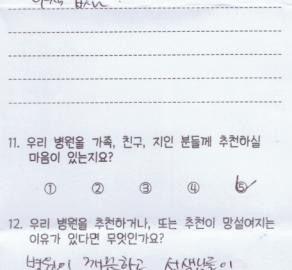 없음
11. 우리 병원을 가족, 친구, 지인 분들께 추천하실
마음이 있는지요?
① ② ③ ④ ⑤
12. 우리 병원을 추천하거나, 또는 추천이 망설여지는
이유가 있다면 무엇인가요?
병원이 깨끗하고 선생님들이